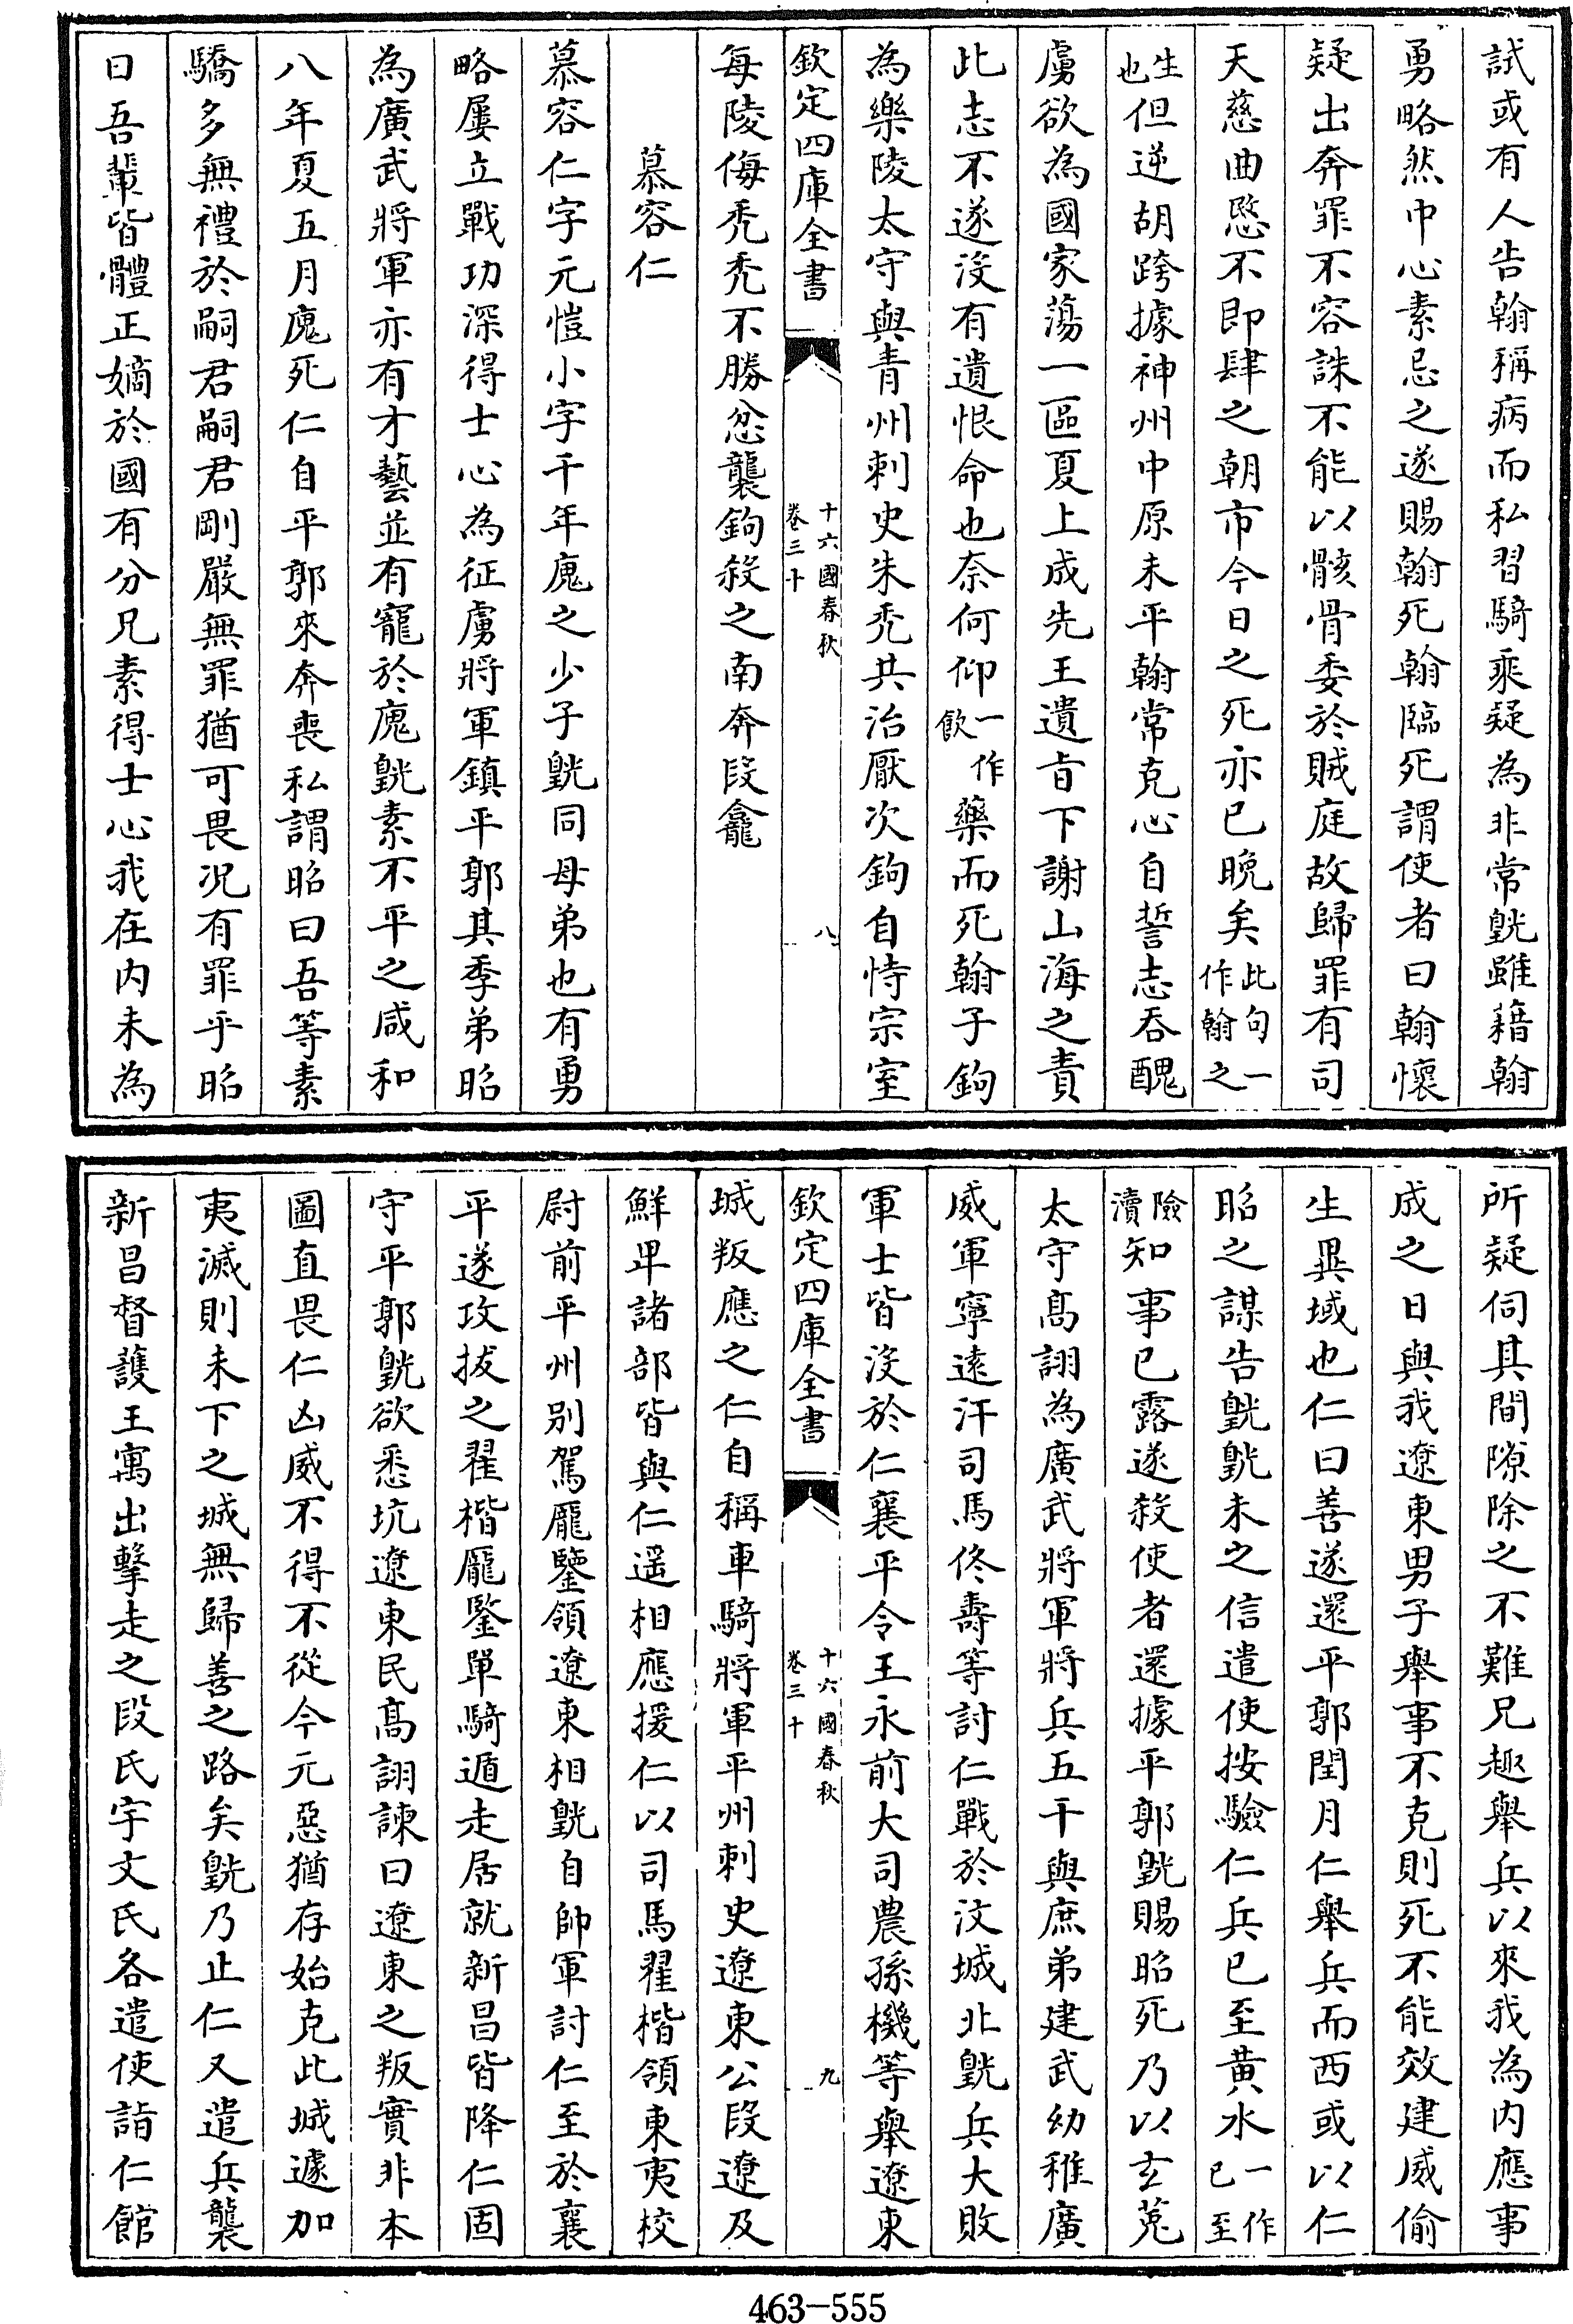 試或有人告翰稱病而私習騎乗疑為非常皝雖藉翰
勇略然中心素忌之遂賜翰死翰臨死謂使者曰翰懷
疑出奔罪不容誅不能以骸骨委於賊庭故歸罪有司
天慈曲愍不即肆之朝市今日之死亦已晚矣此句一作翰之
生也但逆胡跨據神州中原未平翰常克心自誓志吞醜
虜欲為國家蕩一區夏上成先王遺旨下謝山海之責
此志不遂沒有遺恨命也奈何仰一作飲藥而死翰子鉤
為樂陵太守與青州刺史朱禿共治厭次鉤自恃宗室
欽定四庫全書
十六國春秋
卷三十
八
每陵侮禿禿不勝忿襲鉤殺之南奔段龕
慕容仁
慕容仁字元愷小字千年廆之少子皝同母弟也有勇
略屢立戰功深得士心為征虜將軍鎮平郭其季弟昭
為廣武將軍亦有才藝並有寵於廆皝素不平之咸和
八年夏五月廆死仁自平郭來奔喪私謂昭曰吾等素
驕多無禮於嗣君嗣君剛嚴無罪猶可畏況有罪乎昭
曰吾輩皆體正嫡於國有分兄素得士心我在内未為
所疑伺其間隙除之不難兄趣舉兵以來我為内應事
成之日與我遼東男子舉事不克則死不能效建威偷
生異域也仁曰善遂還平郭閏月仁舉兵而西或以仁
昭之謀告皝皝未之信遣使按驗仁兵已至黃水一作已至
險瀆知事已露遂殺使者還據平郭皝賜昭死乃以玄菟
太守高詡為廣武將軍將兵五千與庶弟建武幼稚廣
威軍寧遠汗司馬佟壽等討仁戰於汶城北皝兵大敗
軍士皆沒於仁襄平令王永前大司農孫機等舉遼東
欽定四庫全書
十六國春秋
卷三十
九
城叛應之仁自稱車騎將軍平州刺史遼東公段遼及
鮮卑諸部皆與仁遥相應援仁以司馬翟楷領東夷校
尉前平州别駕龐鑒領遼東相皝自帥軍討仁至於襄
平遂攻拔之翟楷龐鑒單騎遁走居就新昌皆降仁固
守平郭皝欲悉坑遼東民高詡諫曰遼東之叛實非本
圖直畏仁凶威不得不從今元惡猶存始克此城遽加
夷滅則未下之城無歸善之路矣皝乃止仁又遣兵襲
新昌督護王寓出擊走之段氏宇文氏各遣使詣仁館
463-555